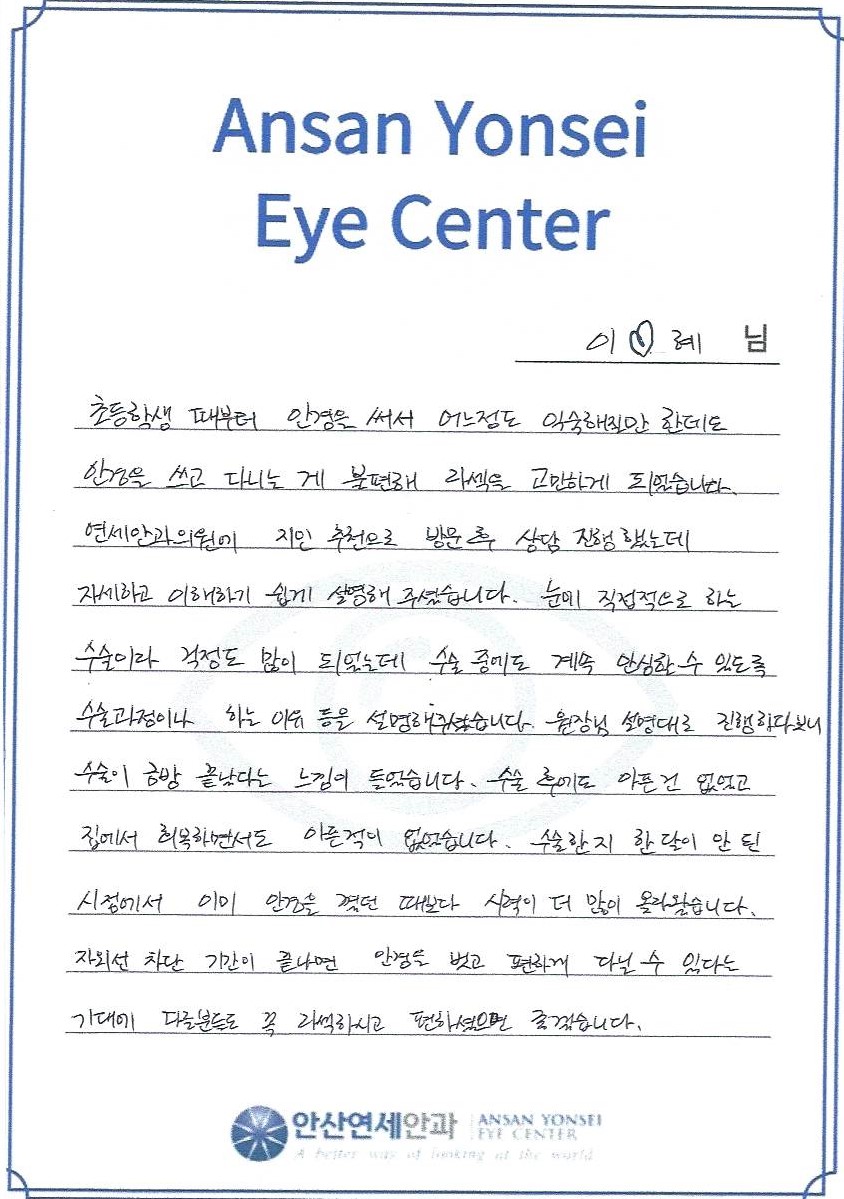 Ansan Yonsei
Eye Center
이 예 님
초등학생 때부터 안경을 써서 어느정도 익숙해졌지만 한데도
안경을 쓰고 다니는 게 불편해 라섹을 고민하게 되었습니다.
연세안과의원에 지인 추천으로 방문 후 상담 진행했는데
자세하고 이해하기 쉽게 설명해 주셨습니다. 눈에 직접적으로 하는
수술이라 걱정도 많이 되었는데 수술 중에도 계속 안심할 수 있도록
수술과정이나 하는 이유 등을 설명해주셨습니다. 원장님 설명대로 진행하다보니
수술이 금방 끝났다는 느낌이 들었습니다. 수술 후에도 아픈건 없었고
집에서 회복하면서도 아픈적이 없었습니다. 수술한지 한 달이 안 된
시점에서 이미 안경을 꼈던 때보다 시력이 더 많이 올라왔습니다.
자외선 차단 기간이 끝나면 안경을 벗고 편하게 다닐 수 있다는
기대에 다른분들도 꼭 라섹하시고 편하셨으면 좋겠습니다.
안산연세안과 ANSAN YONSEI
EYE CENTER
A better way of looking at the world